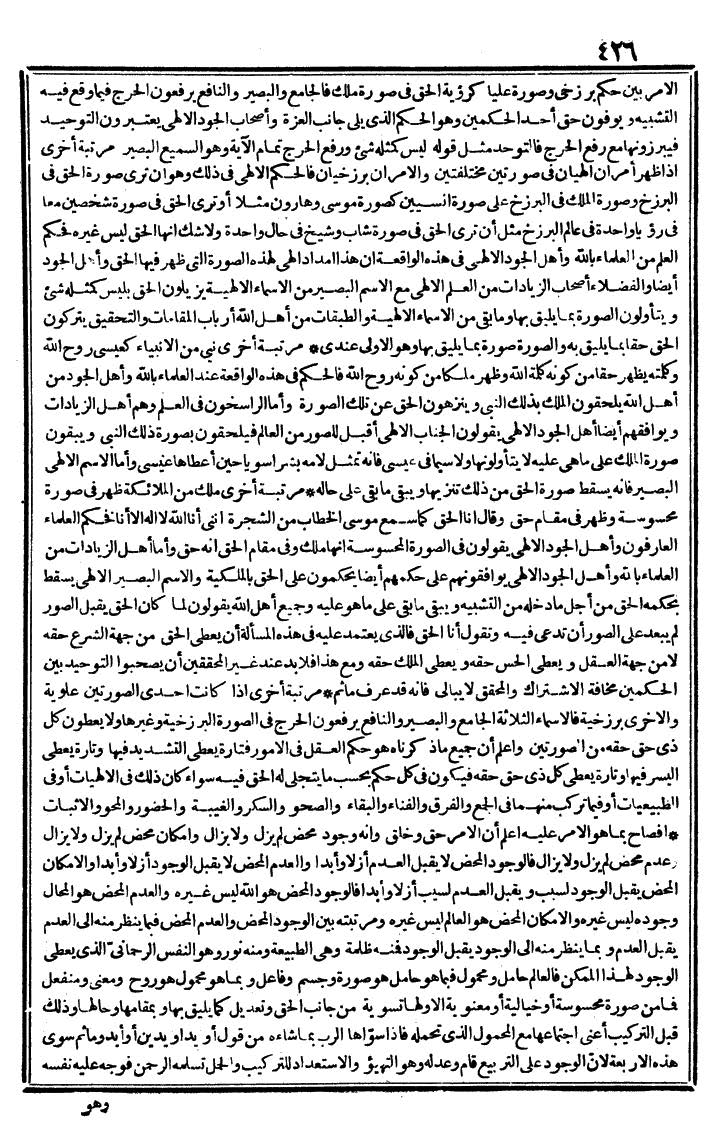 ٤٢٦
الامر بين حكم برزخى وصورة عليا كرؤية الحق فى صورة ملك فالجامع والبصير والنافع يرفعون الحرج فيما وقع فيه
التشبيه ويوفون حق أحد الحكمين وهو الحكم الذى يلى جانب العزة وأصحاب الجود الالهى يعتبرون التوحيد
فيبرزونها مع رفع الحرج فالتوحد مثل قوله ليس كمثله شئ ورفع الحرج تمام الآية وهو السميع البصير مرتبة أخرى
اذا ظهر أمران الهيان فى صورتين مختلفتين والامران برزخيان فالحكم الالهى فى ذلك وهو ان ترى صورة الحق فى
البرزخ وصورة الملك فى البرزخ على صورة انسيين كصورة موسى وهارون مثلا أو ترى الحق فى صورة شخصين معا
فى رؤيا واحدة فى عالم البرزخ مثل أن ترى الحق فى صورة شاب وشيخ فى حال واحدة ولا شك انها الحق ليس غيره فحكم
العلم من العلماء بالله وأهل الجود الالهى فى هذه الواقعة ان هذا امداد الهى لهذه الصورة التى ظهر فيها الحق وأهل الجود
أيضا والفضلاء أصحاب الزيادات من العلم الالهى مع الاسم البصير من الاسماء الالهية يزيلون الحق بليس كمثله شئ
ويتأولون الصورة بما يليق بها وما بقى من الاسماء الالهية والطبقات من أهل الله أرباب المقامات والتحقيق يتركون
الحق حقا بما يليق به والصورة صورة بما يليق بها وهو الاولى عندى * مرتبة أخرى نبى من الانبياء كعيسى روح الله
وكلمته يظهر حقا من كونه كلمة الله وظهر ملكا من كونه روح الله فالحكم فى هذه الواقعة عند العلماء بالله وأهل الجود من
أهل الله يلحقون الملك بذلك النبى وينزهون الحق عن تلك الصورة وأما الراسخون فى العلم وهم أهل الزيادات
ويوافقهم أيضا أهل الجود الالهى يقولون الجناب الالهى أقبل للصور من العالم فيلحقون بصورة ذلك النبى ويبقون
صورة الملك على ماهى عليه لا يتأولونها ولا سيما فى عيسى فانه تمثل لامه بشرا سويا حين أعطاها عيسى وأما الاسم الالهى
البصير فانه يسقط صورة الحق من ذلك تنزيها ويبقى ما بقى على حاله * مرتبة أخرى ملك من الملائكة ظهر فى صورة
محسوسة وظهر فى مقام حق وقال انا الحق كما سمع موسى الخطاب من الشجرة اننى أنا الله لا اله الا أنا فحكم العلماء
العارفون وأهل الجود الالهى يقولون فى الصورة المحسوسة انها ملك وفى مقام الحق انه حق وأما أهل الزيادات من
العلماء بالله وأهل الجود الالهى يوافقونهم على حكمهم أيضا يحكمون على الحق بالملكية والاسم البصير الالهى يسقط
بحكمه الحق من أجل ما دخله من التشبيه ويبقى ما بقى على ما هو عليه وجميع أهل الله يقولون لما كان الحق يقبل الصور
لم يبعد على الصور أن تدعى فيه وتقول أنا الحق فالذى يعتمد عليه فى هذه المسألة أن يعطى الحق من جهة الشرع حقه
لا من جهة العقل ويعطى الحس حقه ويعطى الملك حقه ومع هذا فلابد عند غير المحققين أن يصحبوا التوحيد بين
الحكمين مخافة الاشتراك والمحقق لا يبالى فانه قد عرف ماثم * مرتبة أخرى اذا كانت احدى الصورتين علوية
والاخرى برزخية فالاسماء الثلاثة الجامع والبصير والنافع يرفعون الحرج فى الصورة البرزخية وغيرها ولا يعطون كل
ذى حق حقه من الصورتين واعلم أن جميع ماذكرناه هو حكم العقل فى الامور فتارة يعطى التشديد فيها وتارة يعطى
اليسر فيها وتارة يعطى كل ذى حق حقه فيكون فى كل حكم بحسب ما يتجلى له الحق فيه سواء كان ذلك فى الالهيات أو فى
الطبيعيات أو فيما تركب منهما فى الجمع والفرق والفناء والبقاء والصحو والسكر والغيبة والحضور والمحو والاثبات
* افصاح بما هو الامر عليه اعلم أن الامر حق وخلق وانه وجود محض لم يزل ولا يزال وامكان محض لم يزل ولا يزال
وعدم محض لم يزل ولا يزال فالوجود المحض لا يقبل العدم أزلا وأبدا والعدم المحض لا يقبل الوجود أزلا وأبدا والامكان
المحض يقبل الوجود لسبب ويقبل العدم لسبب أزلا وأبدا فالوجود المحض هو الله ليس غيره والعدم المحض هو المحال
وجوده ليس غيره والامكان المحض هو العالم ليس غيره ومرتبته بين الوجود المحض والعدم المحض فبما ينظر منه الى العدم
يقبل العدم وبما ينظر منه الى الوجود يقبل الوجود فمنه ظلمة وهى الطبيعة ومنه نور وهو النفس الرحمانىّ الذى يعطى
الوجود لهذا الممكن فالعالم حامل ومحمول فبما هو حامل هو صورة وجسم وفاعل وبما هو محمول هو روح ومعنى ومنفعل
فما من صورة محسوسة أو خيالية أو معنوية الا ولها تسوية من جانب الحق وتعديل كما يليق بها وبمقامها وحالها وذلك
قبل التركيب أعنى اجتماعها مع المحمول الذى تحمله فاذا سوّاها الرب بما شاءه من قول أو يد أو يدين أو أيد وماثم سوى
هذه الاربعة لانّ الوجود على التربيع قام وعدله وهو التهيؤ والاستعداد للتركيب والحمل تسلمه الرحمن فوجه عليه نفسه
وهو